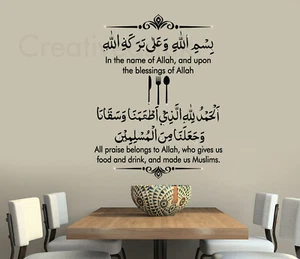 Creati
بِسْمِ اللهِ وَعَلَى بَرَكَةِ اللهِ
In the name of Allah, and upon
the blessings of Allah
اَلْحَمْدُ لِلّٰهِ الَّذِيْ اَطْعَمَنَا وَسَقَانَا
وَجَعَلَنَا مِنَ الْمُسْلِمِيْنَ
All praise belongs to Allah, who gives us
food and drink, and made us Muslims.